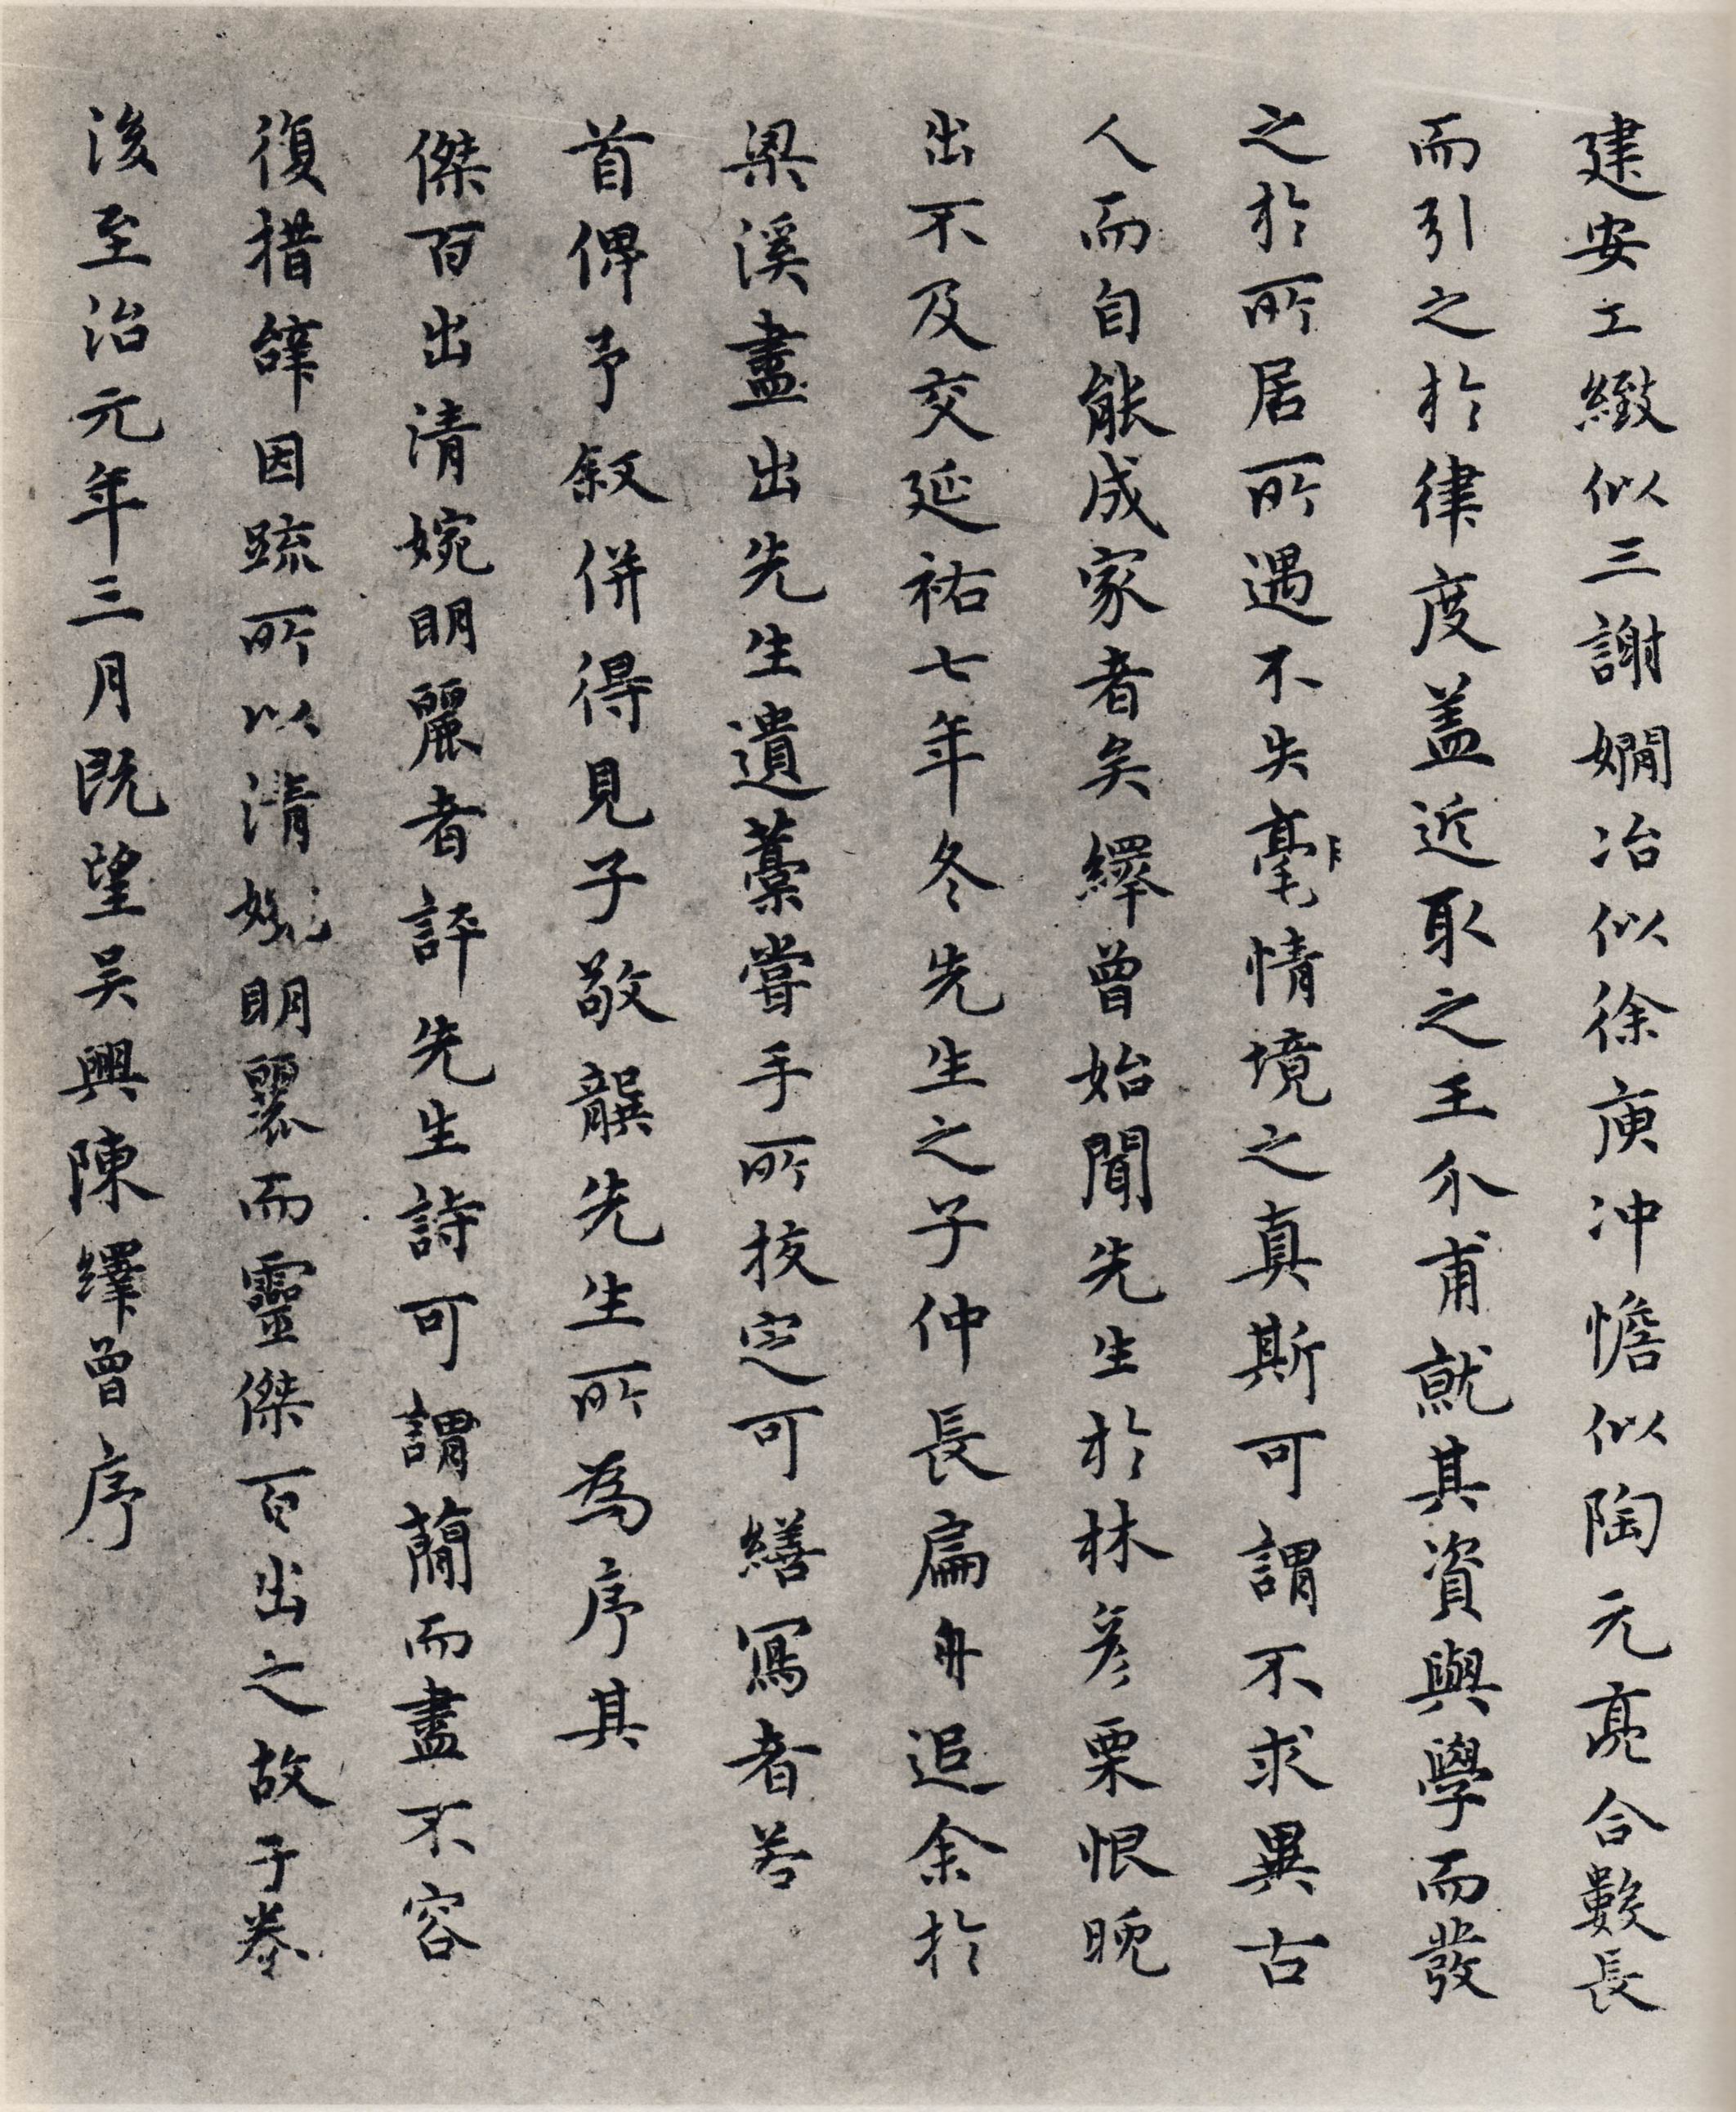 建安工緻似三謝嫺冶似徐庾冲憺似陶元亮合數長
而引之於律度盖近取之王介甫就其資與學而發
之於所居所遇不失毫情境之真斯可謂不求異古
人而自能成家者矣繹曾始聞先生於林彥栗恨晚
出不及交延祐七年冬先生之子仲長扁舟追余於
梁溪盡出先生遺藁嘗手所挍定可繕寫者若
首俾予叙併得見子敬龔先生所為序其
傑百出清婉明麗者評先生詩可謂蕳而盡不容
復措辭因疏所以清婉明麗而靈傑百出之故于卷
後至治元年三月既望吴興陳繹曾序